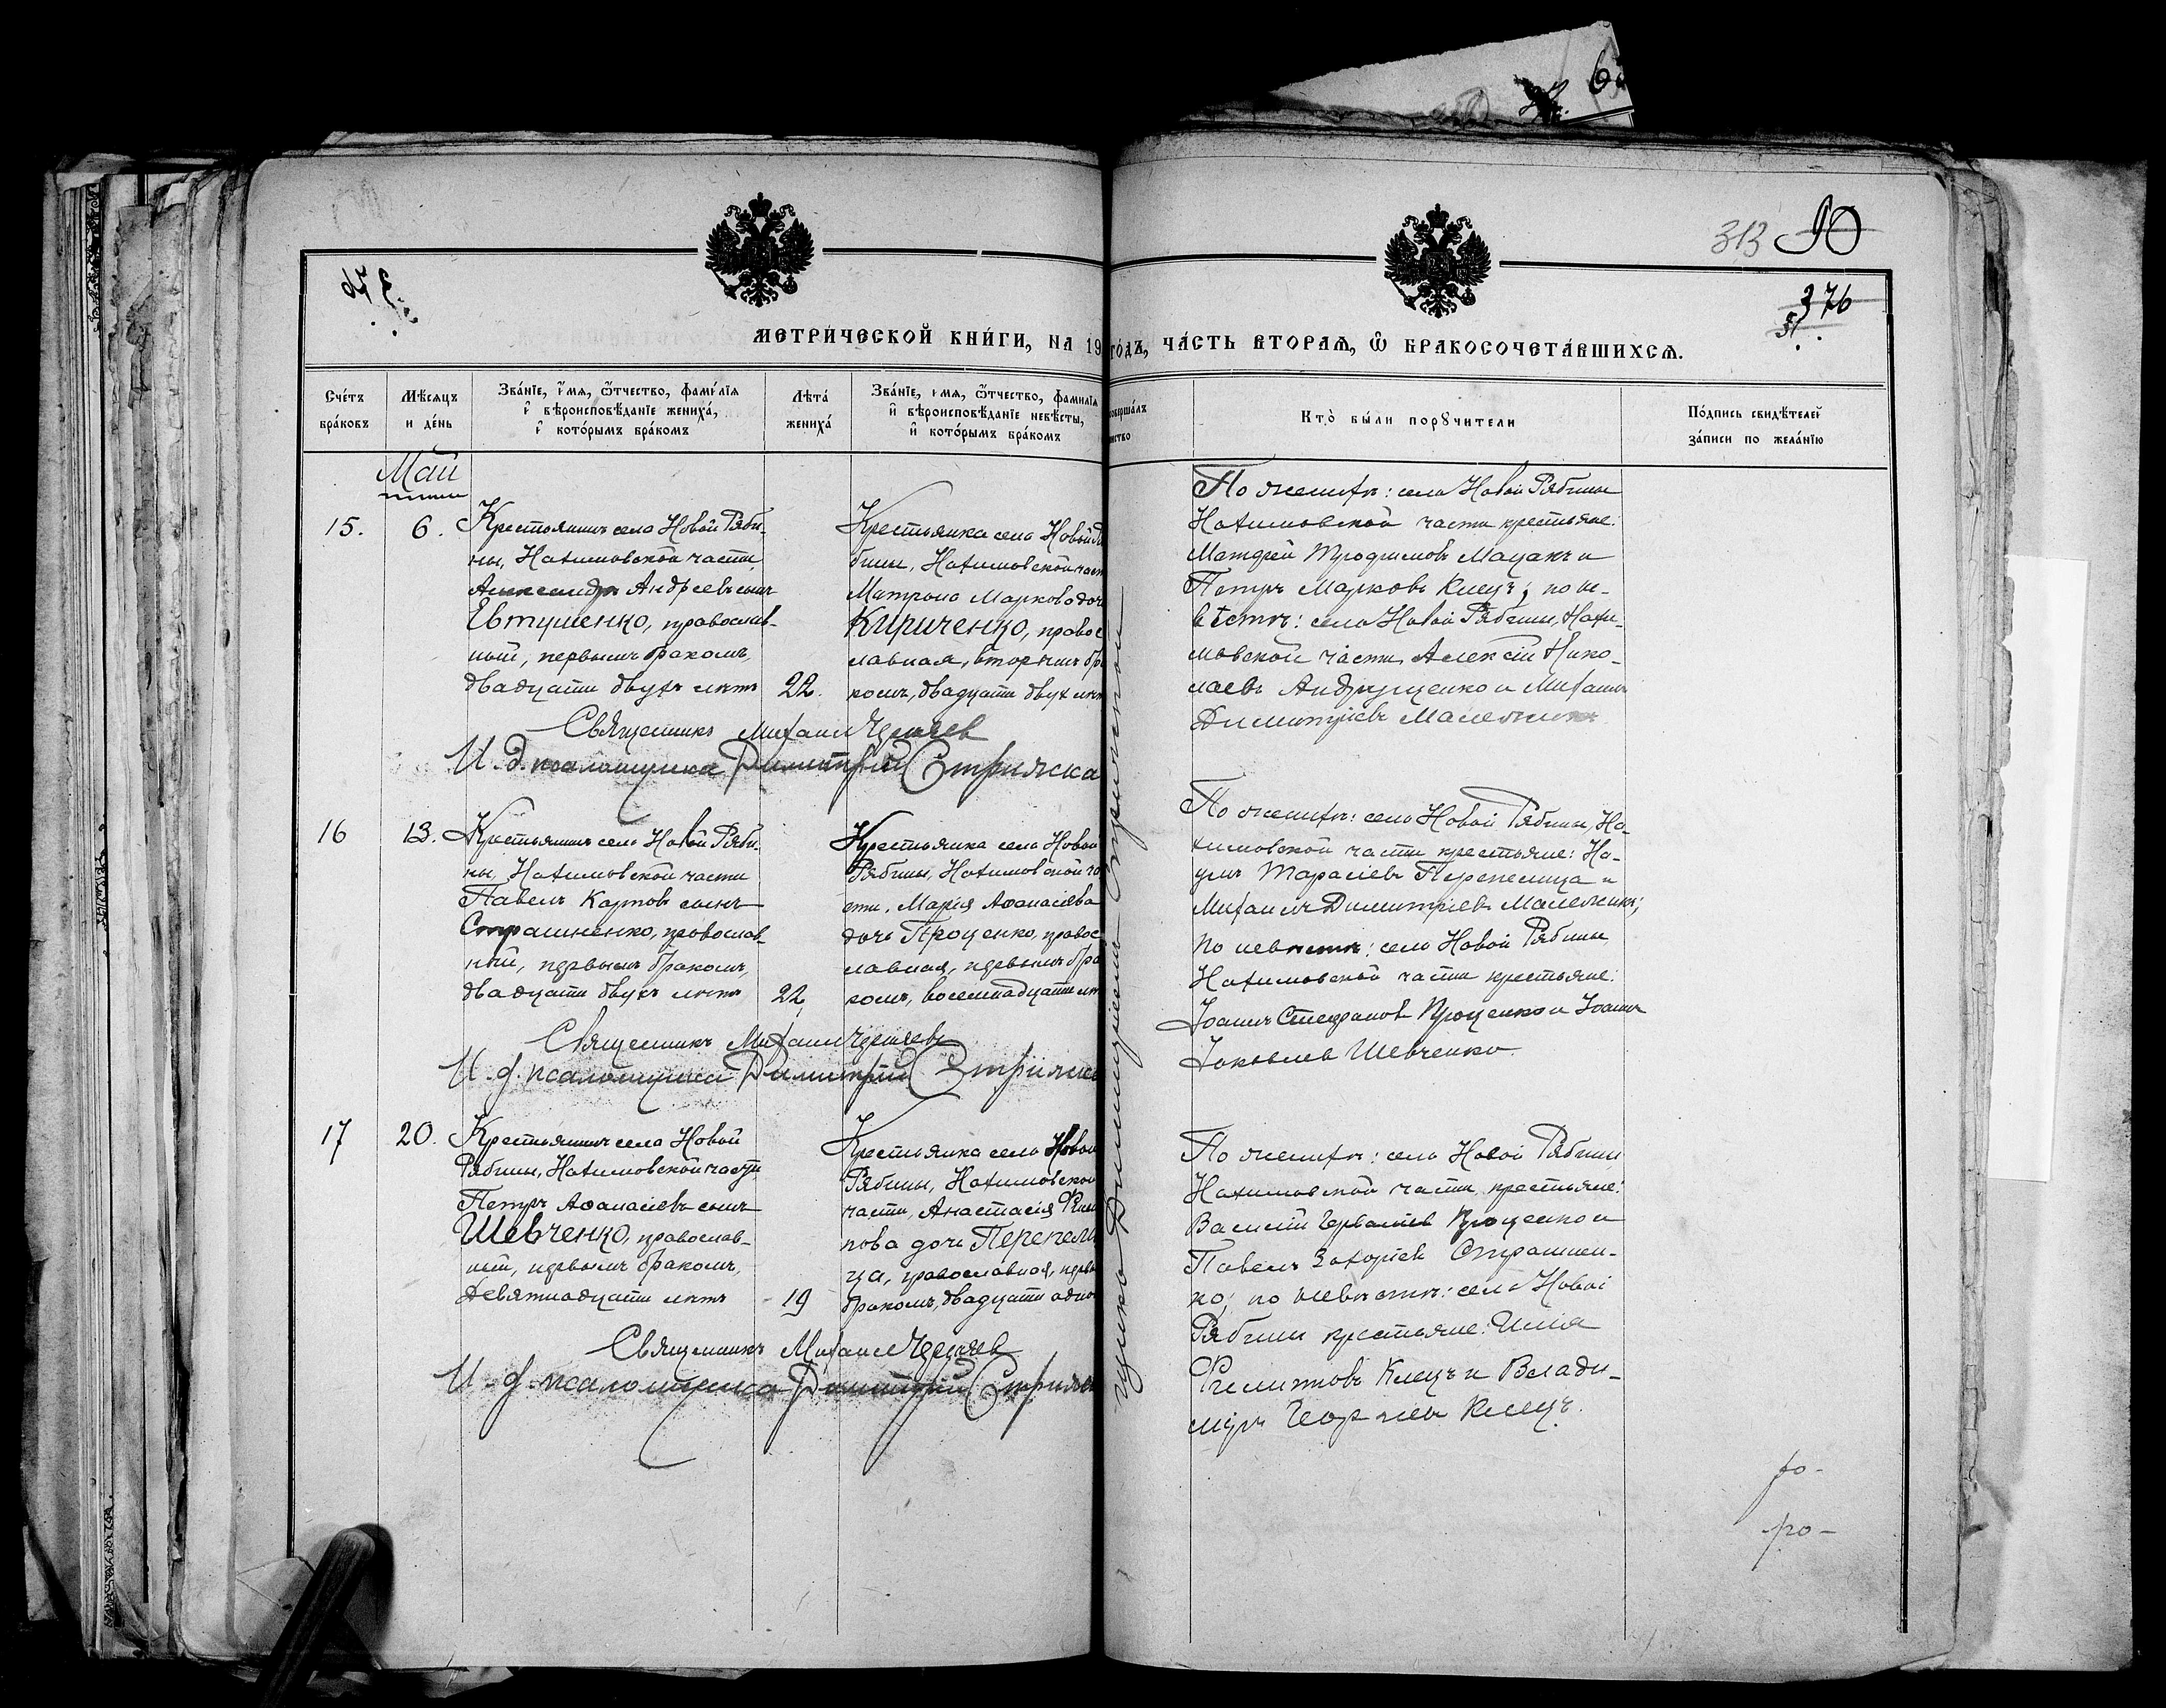 313 90
376
МЕТРИ́ЧЕСКОЙ КНИ́ГИ, НА 19
го́дъ, ЧА́СТЬ ВТОРАѦ, Ѿ БРАКОСОЧЕТА́ВШИХСѦ.
Сче́тъ бра́ковъ
Мѣ́сяцъ и де́нь
Зва́нїе, и́мя, ѻ҆́тчество, фами́лїя
и҆ вѣроисповѣ́данїе жениха́,
и҆ кото́рымъ бра́комъ
Лѣта́ жениха́
Зва́нїе, имя, ѻ҆́тчество, фамилїя
и҆ вѣроисповѣ́данїе невѣ́сты,
и҆ кото́рымъ бра́комъ
Кто̀ бы́ли порꙋчители
По́дпись свидѣ́телей
за́писи по жела́нїю
Май
15.
6.
Крестьянинъ села Новой Ряби-
ны, Нахимовской части
Александръ Андреевъ сынъ
Евтушенко, православ-
ный, первымъ бракомъ,
двадцати двухъ лѣтъ
22.
Крестьянка села Новой Ря
бины, Нахимовской част
Матрона Маркова доч
Кириченко, правос
лавная, вторымъ бр
комъ, двадцати двух лѣт
Священникъ Михаилъ
И. д. псаломщика Димитрій Стрижка
По женихѣ: села Новой Рябины
Нахимовской части крестьяне:
Матфей Трофимовъ Мацакъ и
Петръ Марковъ Клецъ; по не-
вѣстѣ: села Новой Рябины, Нахи-
мовской части Алексій Нико-
лаевъ Андрущенко и Михаилъ
Димитріевъ Малежикъ
16
13.
Крестьянинъ села Новой Ряби-
ны, Нахимовской части
Павелъ Карповъ сынъ
Страшненко, православ-
ный, первымъ бракомъ,
двадцати двухъ лѣтъ
22
Крестьянка села Новой
Рябины, Нахимовской ча
сти, Марія Аѳанасіева
дочь Проценко, правос
лавная, первымъ бра
комъ, восемнадцати лѣт
Священникъ Михаилъ
И. д. псаломщика Димитрій Стрижка
По женихѣ: села Новой Рябины, На-
химовской части крестьяне: На-
умъ Тарасіевъ Перепелица и
Михаилъ Димитріевъ Малежикъ;
по невѣстѣ: села Новой Рябины
Нахимовской части крестьяне:
Іоаннъ Стефановъ Проценко и Іоаннъ
Іаковлевъ Шевченко.
17
20.
Крестьянинъ села Новой
Рябины, Нахимовской части
Петръ Аѳанасіевъ сынъ
Шевченко, православ-
ный, первымъ бракомъ,
девятнадцати лѣтъ
19
Крестьянка села Новой
Рябины, Нахимовской
части, Анастасія Фили
пова дочь Перепели
ца, православная, перв
бракомъ, двадцати одно
Священникъ Михаилъ
И. д. псаломщика Димитрій Стриж
По женихѣ: села Новой Рябины
Нахимовской части крестьяне:
Василій Проценко и
Павелъ Захаріевъ Страшнен-
ко; по невѣстѣ: села Новой
Рябины крестьяне: Илія
Филипповъ Клецъ и Влади-
міръ Георгіевъ Клецъ.